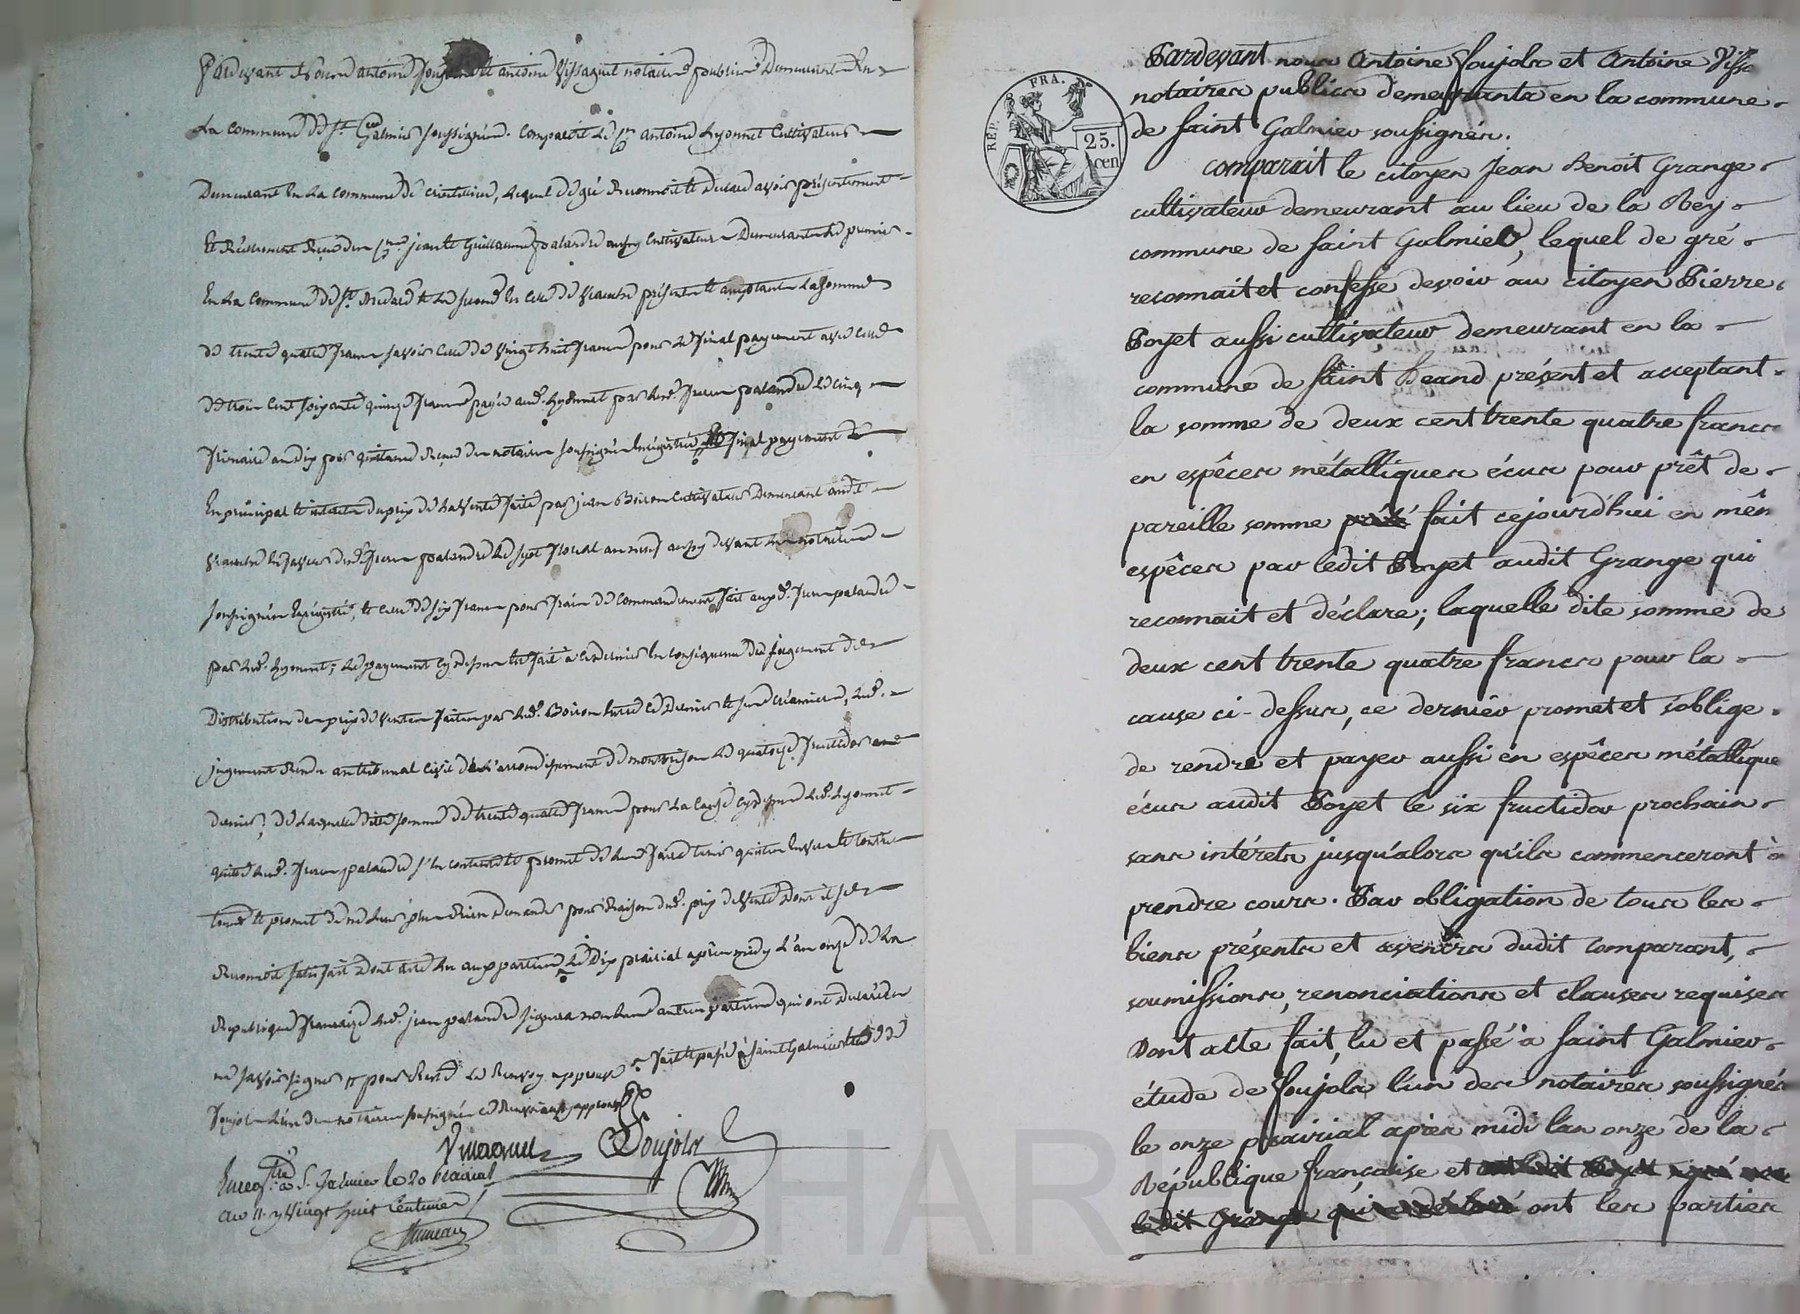 Pardevant Nous antoine et antoine Vissaguet notaires publics Demeurant En
La Commune de St. Galmier soussignés. Comparoit Le Sr. Antoine Lyonnet Cultivateur
Demeurant En La Commune de lequel de gré Reconnoit et Declare avoir présentement
Et Réellement Reçu des Srs. jean et Guillaume palandre aussy Cultivateurs Demeurants Le premier
En La Commune de St. Medard et Le second En Celle de présents et acceptants La somme
de trente quatre francs savoir Celle de vingt huit francs pour Le final payement avec Celle
de trois Cent soixante quinze francs payée aud. Lyonnet par led. freres palandre Le cinq
frimaire an dix par quittance Reçue des notaires soussignés Enregistrée final payement
En principal et interets du prix de La Vente faite par jean Boiron Cultivateur Demeurant audit
Le sept floreal an neuf aussy devant Les notaires
soussignés Enregistré, et Celle de six francs pour frais de Commandement fait auxd. freres palandre
par led. Lyonnet; Le payement cy dessus Est fait à Ce dernier En Consequence du jugement de
Distribution des prix de Ventes faites par led. Boiron Entre Ce Dernier et ses Creanciers, led.
jugement Rendu au tribunal Civil de L'arrondissement de montbrison Le quatorze fructidor
dernier; de Laquelle dite somme de trente quatre francs pour La Cause cy dessus led. Lyonnet
quitte led. freres palandre s'En Contente et promet de Les faire tenir quittes Envers et Contre
tous et promet de ne Leur plus Rien demander pour Raison dud. prix de Vente dont il se
Reconnoit satisfait Dont acte Lu aux parties Le Dix prairial après midy L'an onze de La
Republique française led. jean palandre signera non Les autres parties qui ont Declaré
ne savoir signer Le Renvoy approuvé fait et passé à saint Galmier Etude de
Soujols L'un des notaires soussignés
Vissaguet Soujols
Enregistré à St. Galmier le 20 Prairial
an 11. Vingt huit Centimes
RÉP. FRA.
25. cen
Pardevant nous Antoine Soujols et Antoine Vissa
notaires publics demeurants en la commune
de saint Galmier soussignés.
comparait le citoyen Jean Benoit Grange
cultivateur demeurant au lieu de la Rey
commune de saint Galmier, lequel de gré
reconnait et confesse devoir au citoyen Pierre
Poyet aussi cultivateur demeurant en la
commune de saint présent et acceptant
la somme de deux cent trente quatre francs
en espêces métalliques écus pour prêt de
pareille somme fait cejourd'hui en mêm
espêces par ledit Poyet audit Grange qui
reconnait et déclare; laquelle dite somme de
deux cent trente quatre francs pour la
cause ci-dessus, ce dernier promet et s'oblige
de rendre et payer aussi en espêces métallique
écus audit Poyet le six fructidor prochain
sans intérets jusqu'alors qu'ils commenceront à
prendre cours. Par obligation de tous les
biens présents et avenirs dudit comparant,
soumissions, renonciations et clauses requises
Dont acte fait, lu et passé à saint Galmier
étude de Soujols l'un des notaires soussignés
le onze prairial après midi l'an onze de la
République française et
ledit Grange qui a déclaré ont les parties